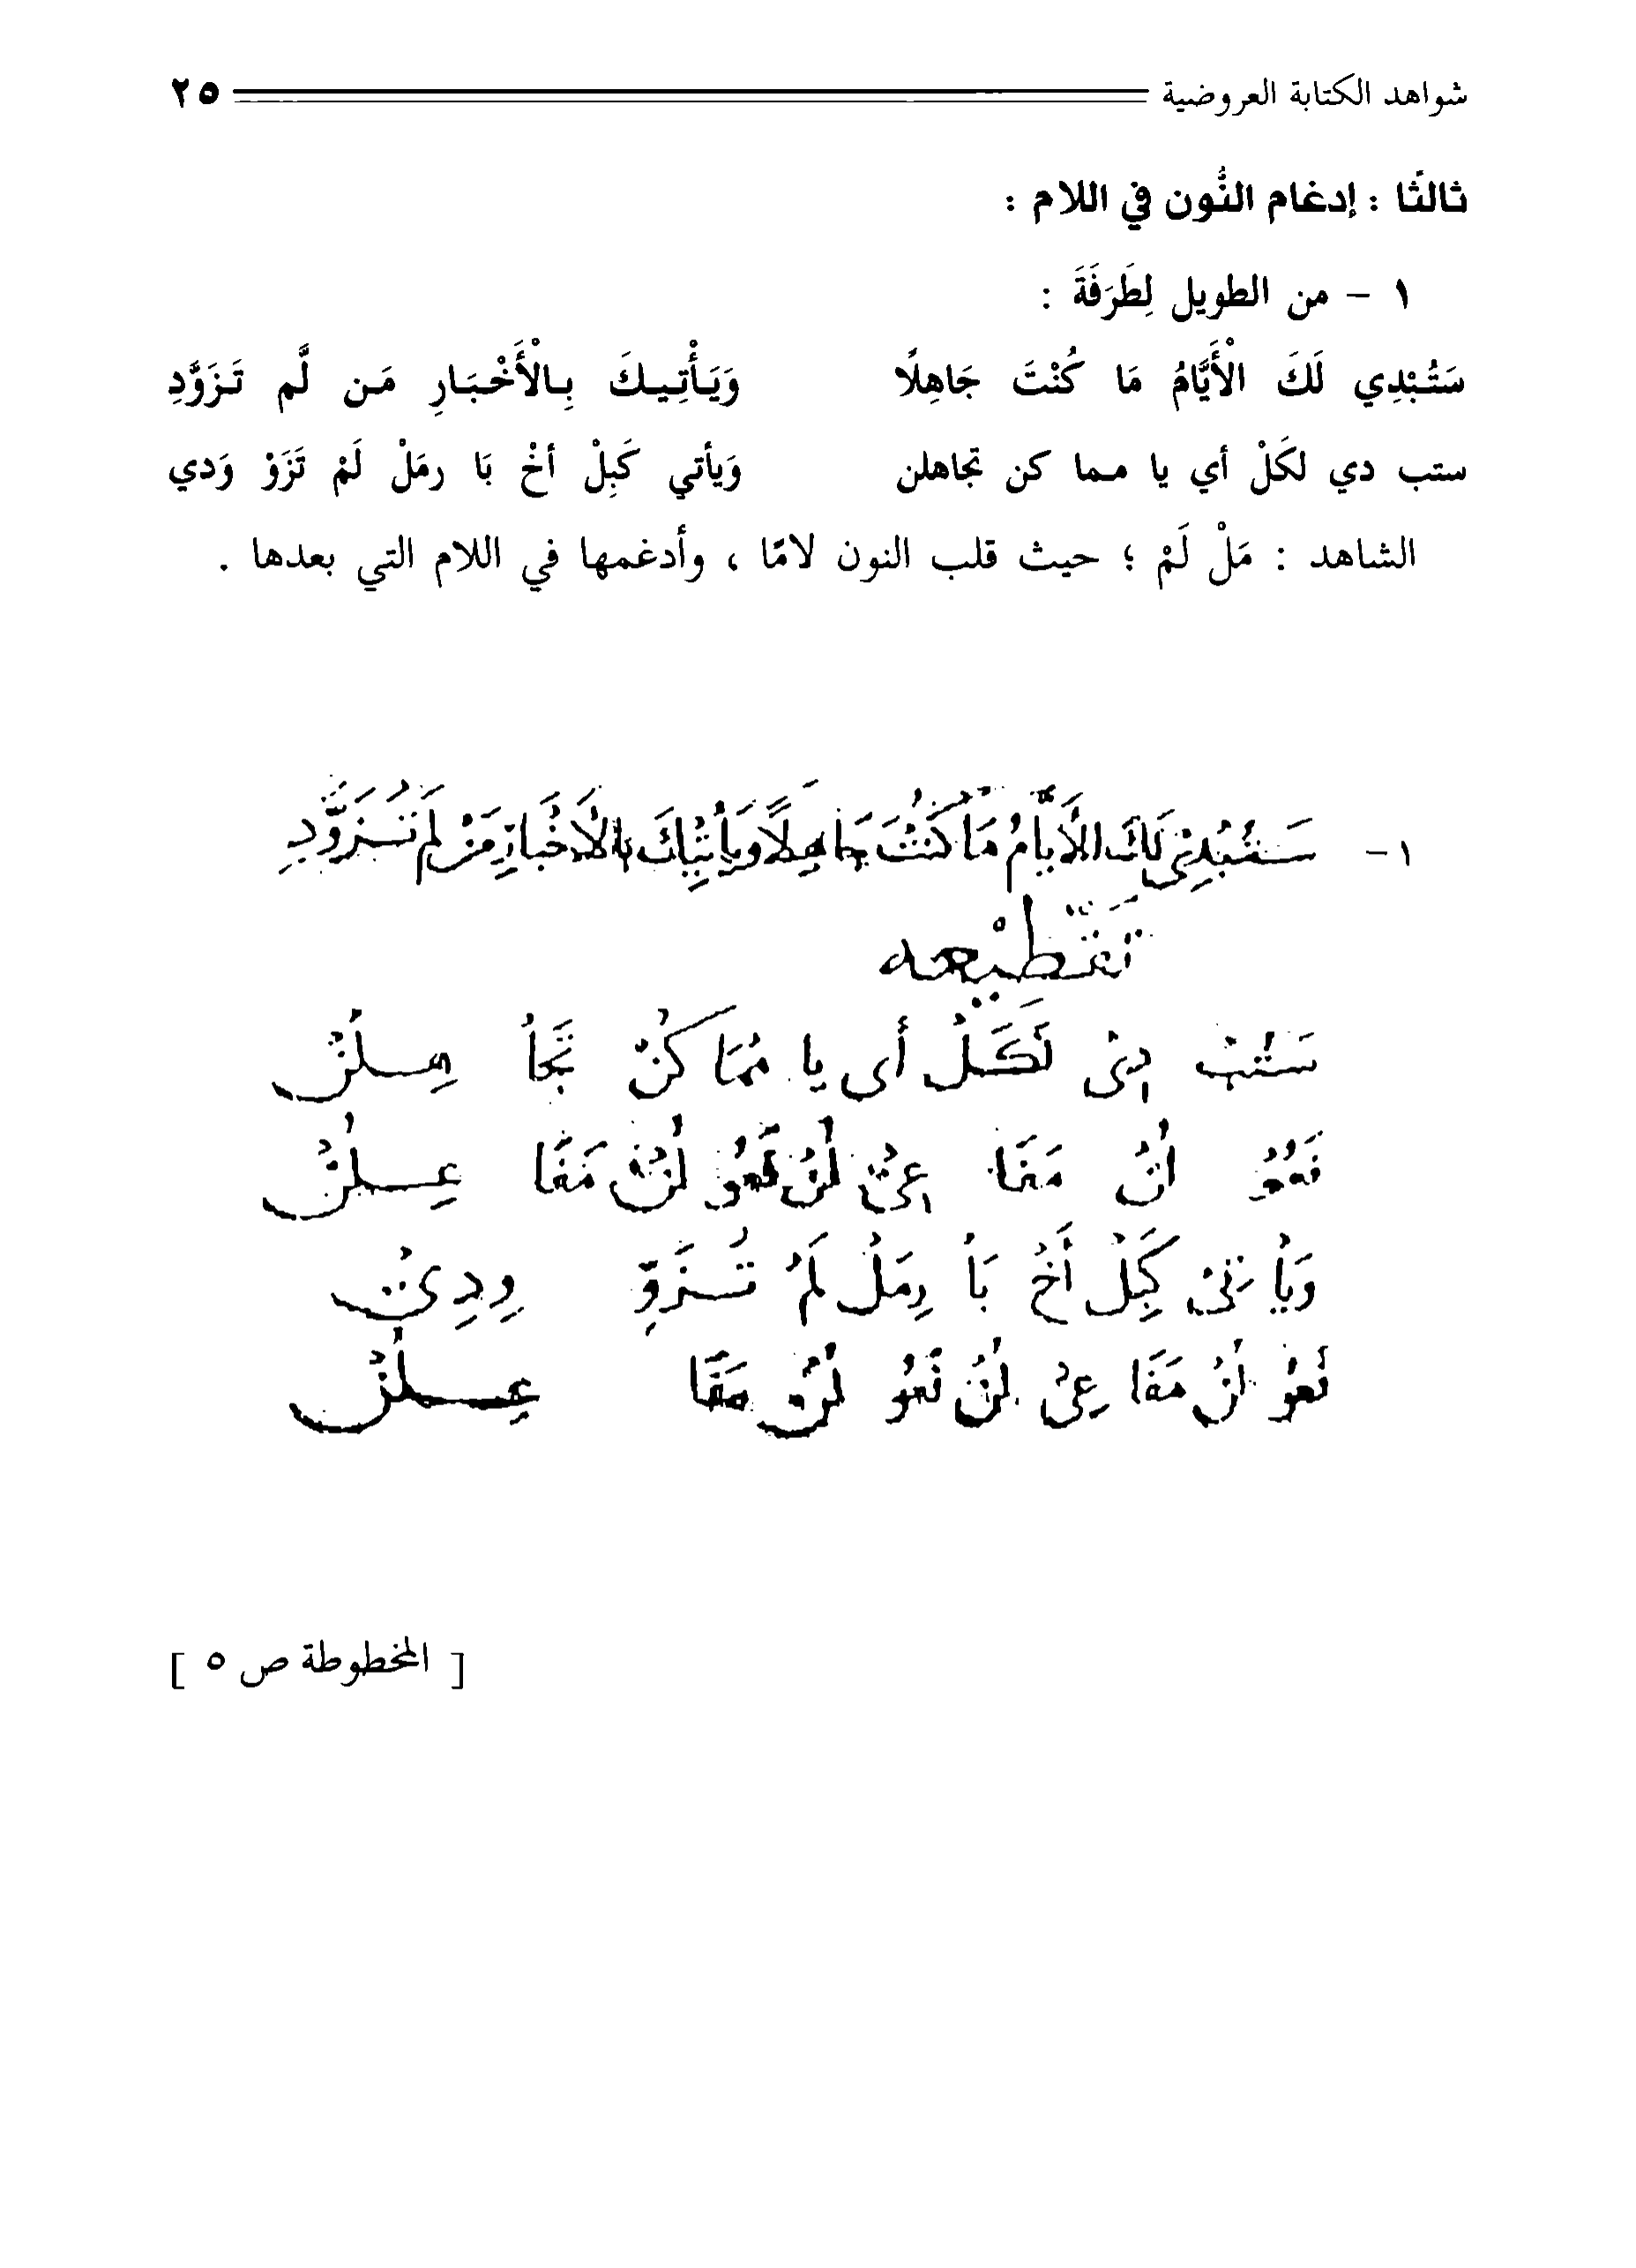 شواهد الكتابة العروضية ٢٥
ثالثًا : إدغام النُّون في اللام :
١ – من الطويل لِطَرَفَةَ :
سَتُبْدِي لَكَ الْأَيَّامُ مَا كُنْتَ جَاهِلًا وَيَأْتِيكَ بِالْأَخْبَارِ مَن لَّم تَزَوَّدِ
ستب دي لكَلْ أي يا مما كن تجاهلن وَيأتي كَبِلْ أخْ بَا رمَلْ لَمْ تَزَوْ وَدي
الشاهد : مَلْ لَمْ ؛ حيث قلب النون لامًا ، وأدغمها في اللام التي بعدها .
١ – سَتُبْدِىْ لَكَ الْأَيَّامُ مَا كُنْتَ جَاهِلًا وَيَأْتِيْكَ بِالْأَخْبَارِ مَنْ لَمْ تُزَوَّدِ
تَقْطِيْعه
سَتُبْ دِىْ لَكَلْ أى يا مُمَا كُنْ تَجَاْ هِلَنْ
فَعُوْ لُنْ مَفَا عِىْ لُنْ فَعُو لُنْ مَفَا عِلُنْ
وَيَأْ تِىْ كَبِلْ أَخْ بَاْ رِمَلْ لَمْ تُزَوِّ وِدِىْ
فَعُو لُنْ مَفَا عِىْ لُنْ فَعُو لُنْ مَفَا عِلُنْ
[ المخطوطة ص ٥ ]